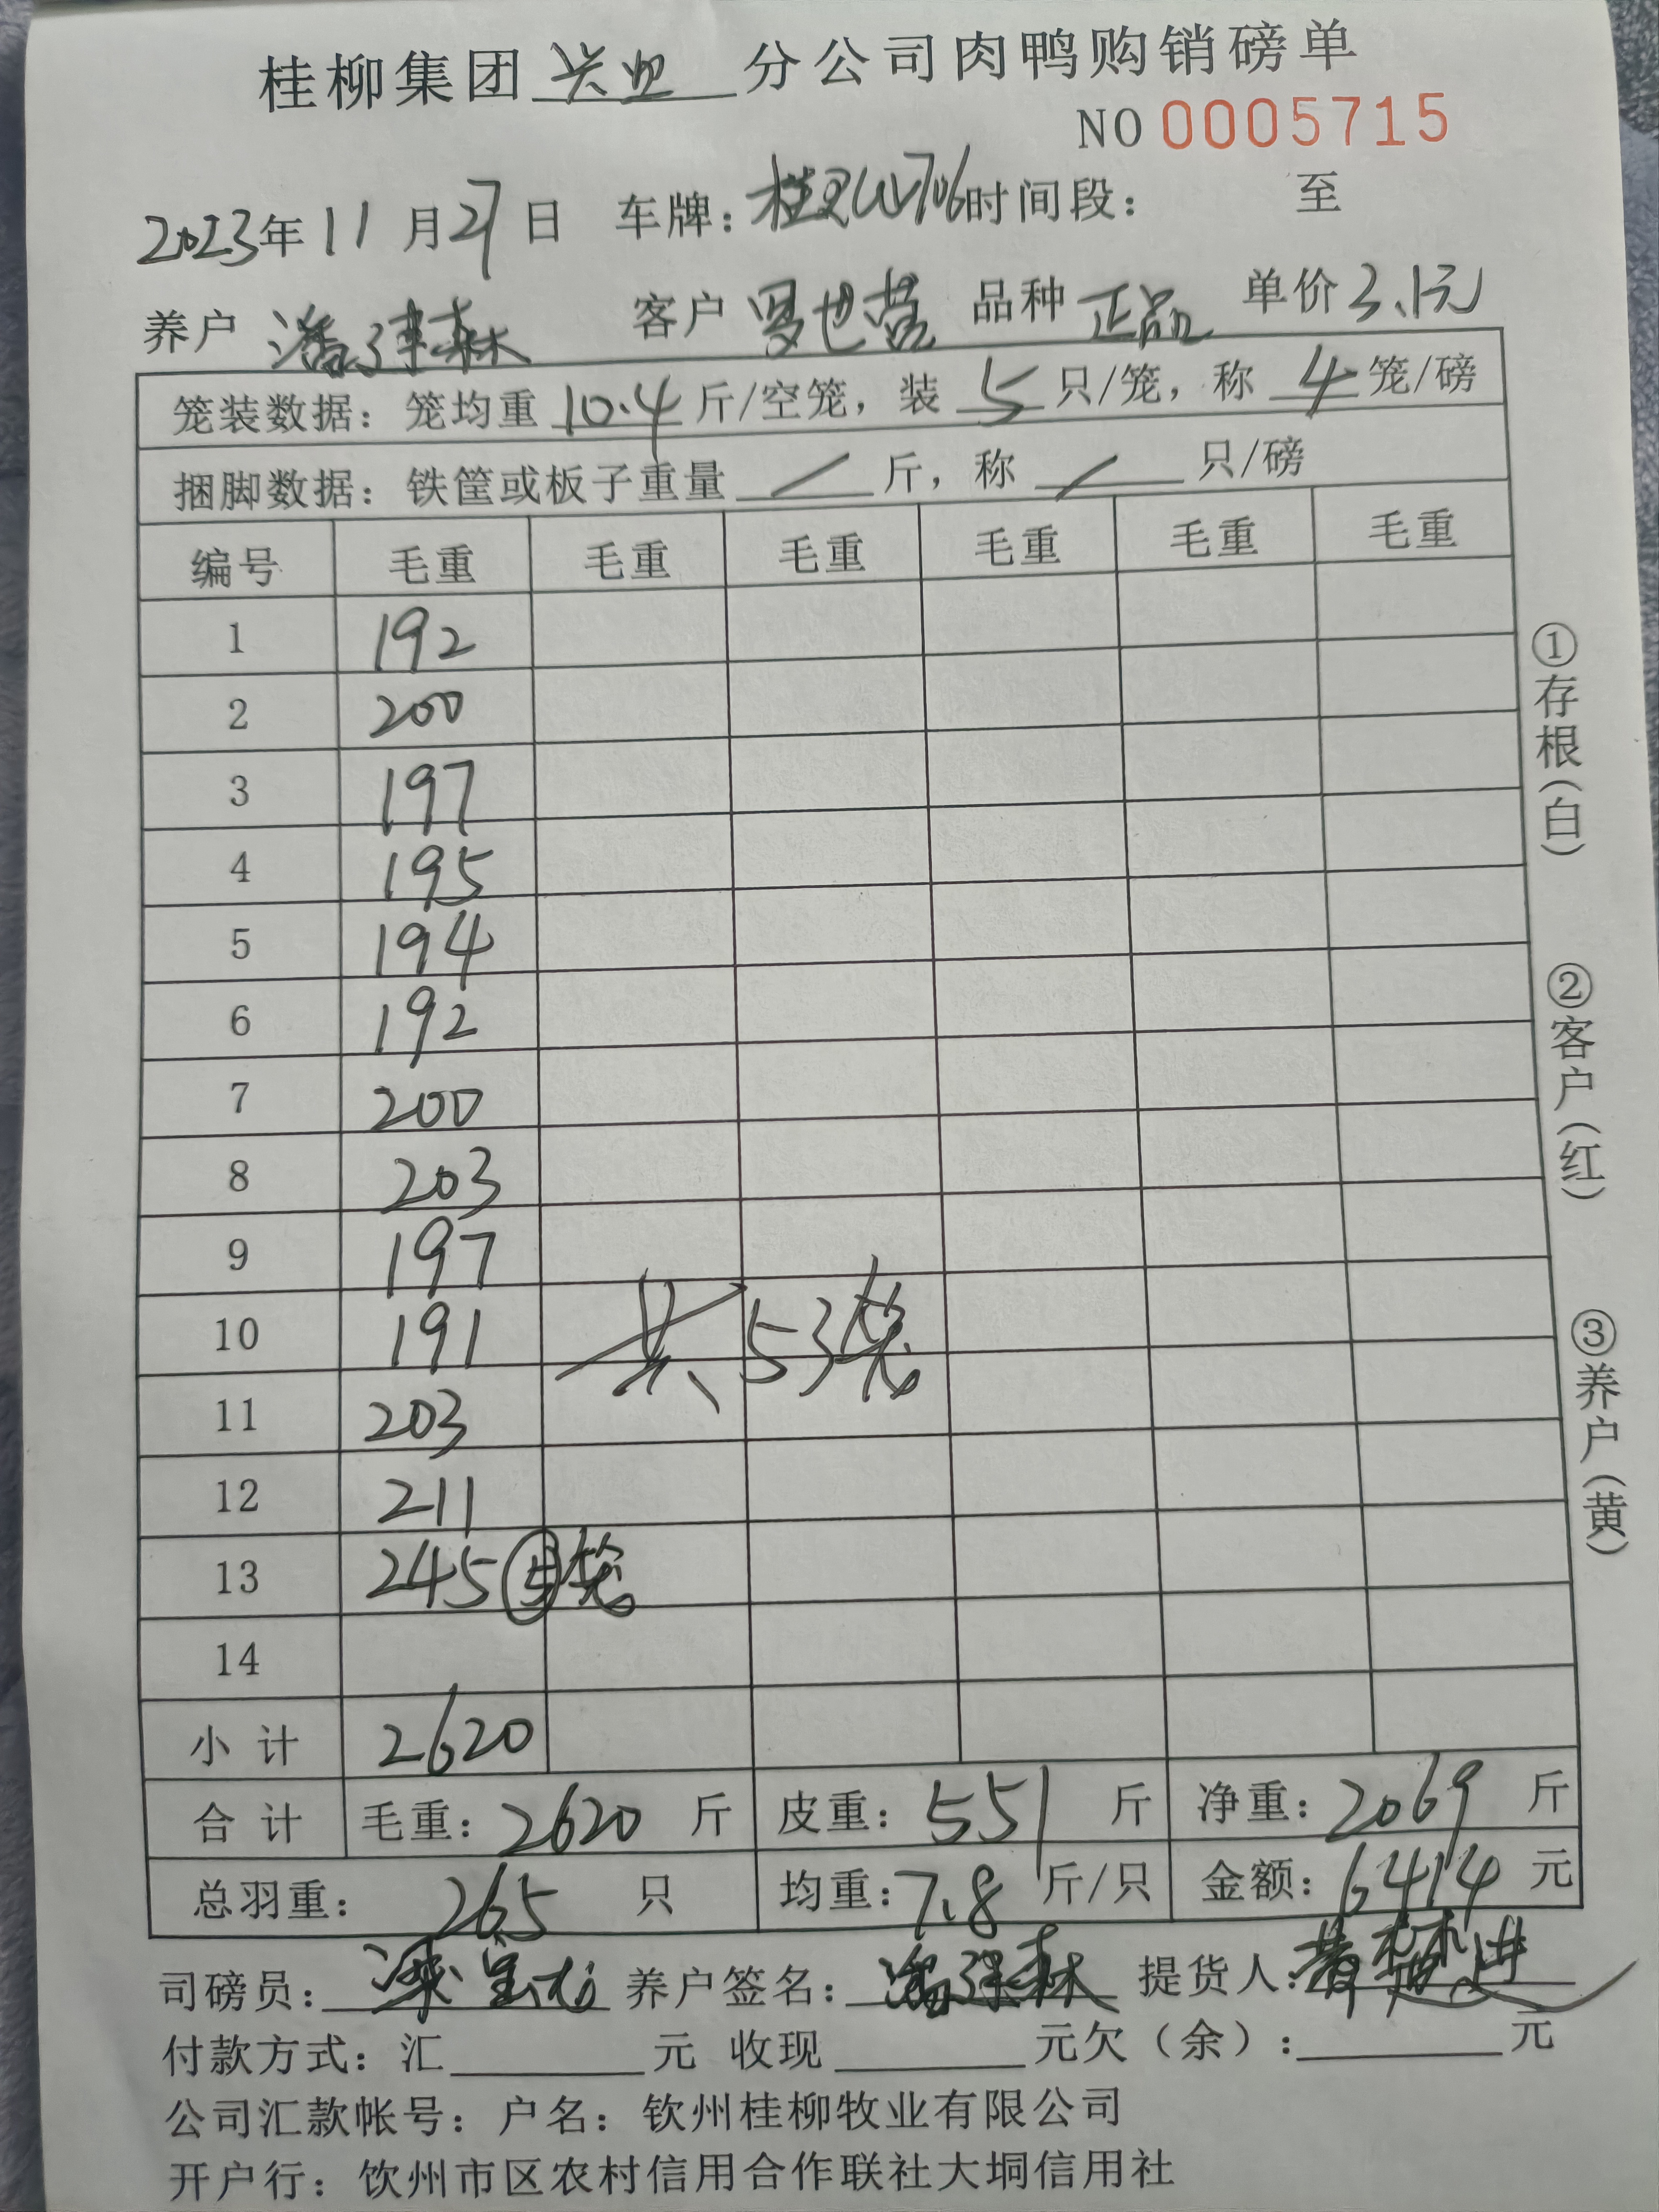 桂柳集团兴业分公司肉鸭购销磅单
NO 0005715
2023年11月27日 车牌:桂 W706时间段: 至
养户 潘 森 客户 罗世营 品种 正品 单价3.1元
笼装数据:笼均重10.4斤/空笼,装5只/笼,称4笼/磅
捆脚数据:铁筐或板子重量 / 斤,称 / 只/磅
编号 毛重 毛重 毛重 毛重 毛重 毛重
1 192
2 200
3 197
4 195
5 194
6 192
7 200
8 203
9 197
10 191 共53笼
11 203
12 211
13 245 ⑤笼
14
小计 2620
合计 毛重:2620斤 皮重:551斤 净重:2069斤
总羽重:265只 均重:7.8斤/只 金额:6414元
司磅员: 梁 养户签名:潘 森 提货人:黄 进
付款方式:汇 元 收现 元欠(余): 元
公司汇款帐号:户名:钦州桂柳牧业有限公司
开户行:饮州市区农村信用合作联社大垌信用社
①存根(白)
②客户(红)
③养户(黄)